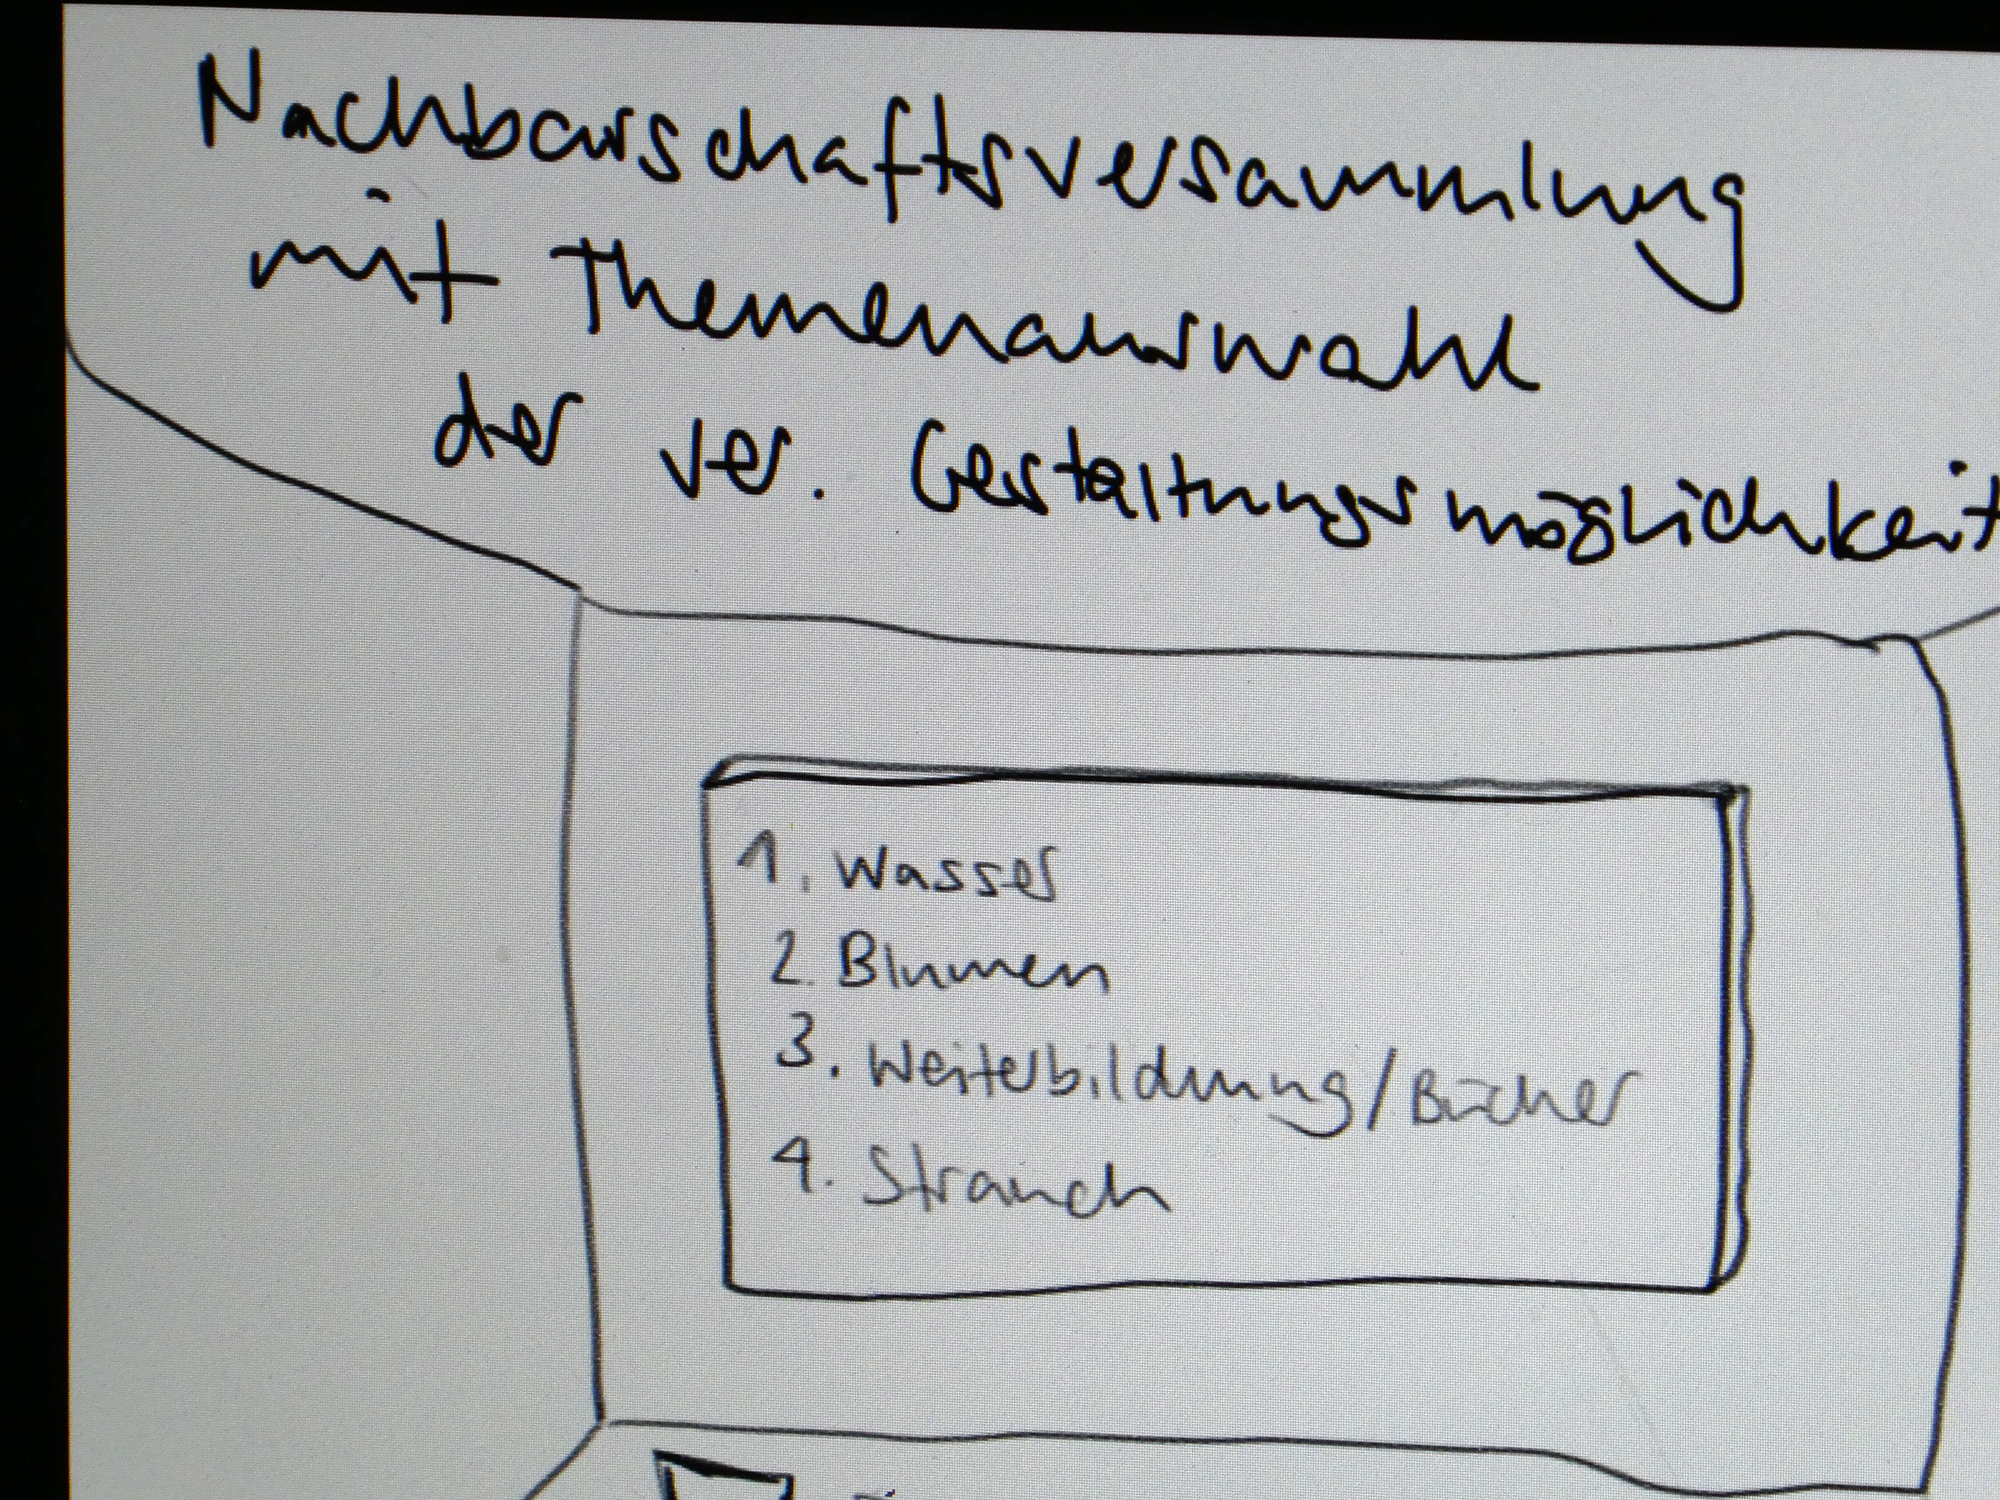 Nachbarschaftsversammlung
mit Themenauswahl
der ver. Gestaltungsmöglichkeit
1. Wasser
2. Blumen
3. Weiterbildung/Bücher
4. Strauch